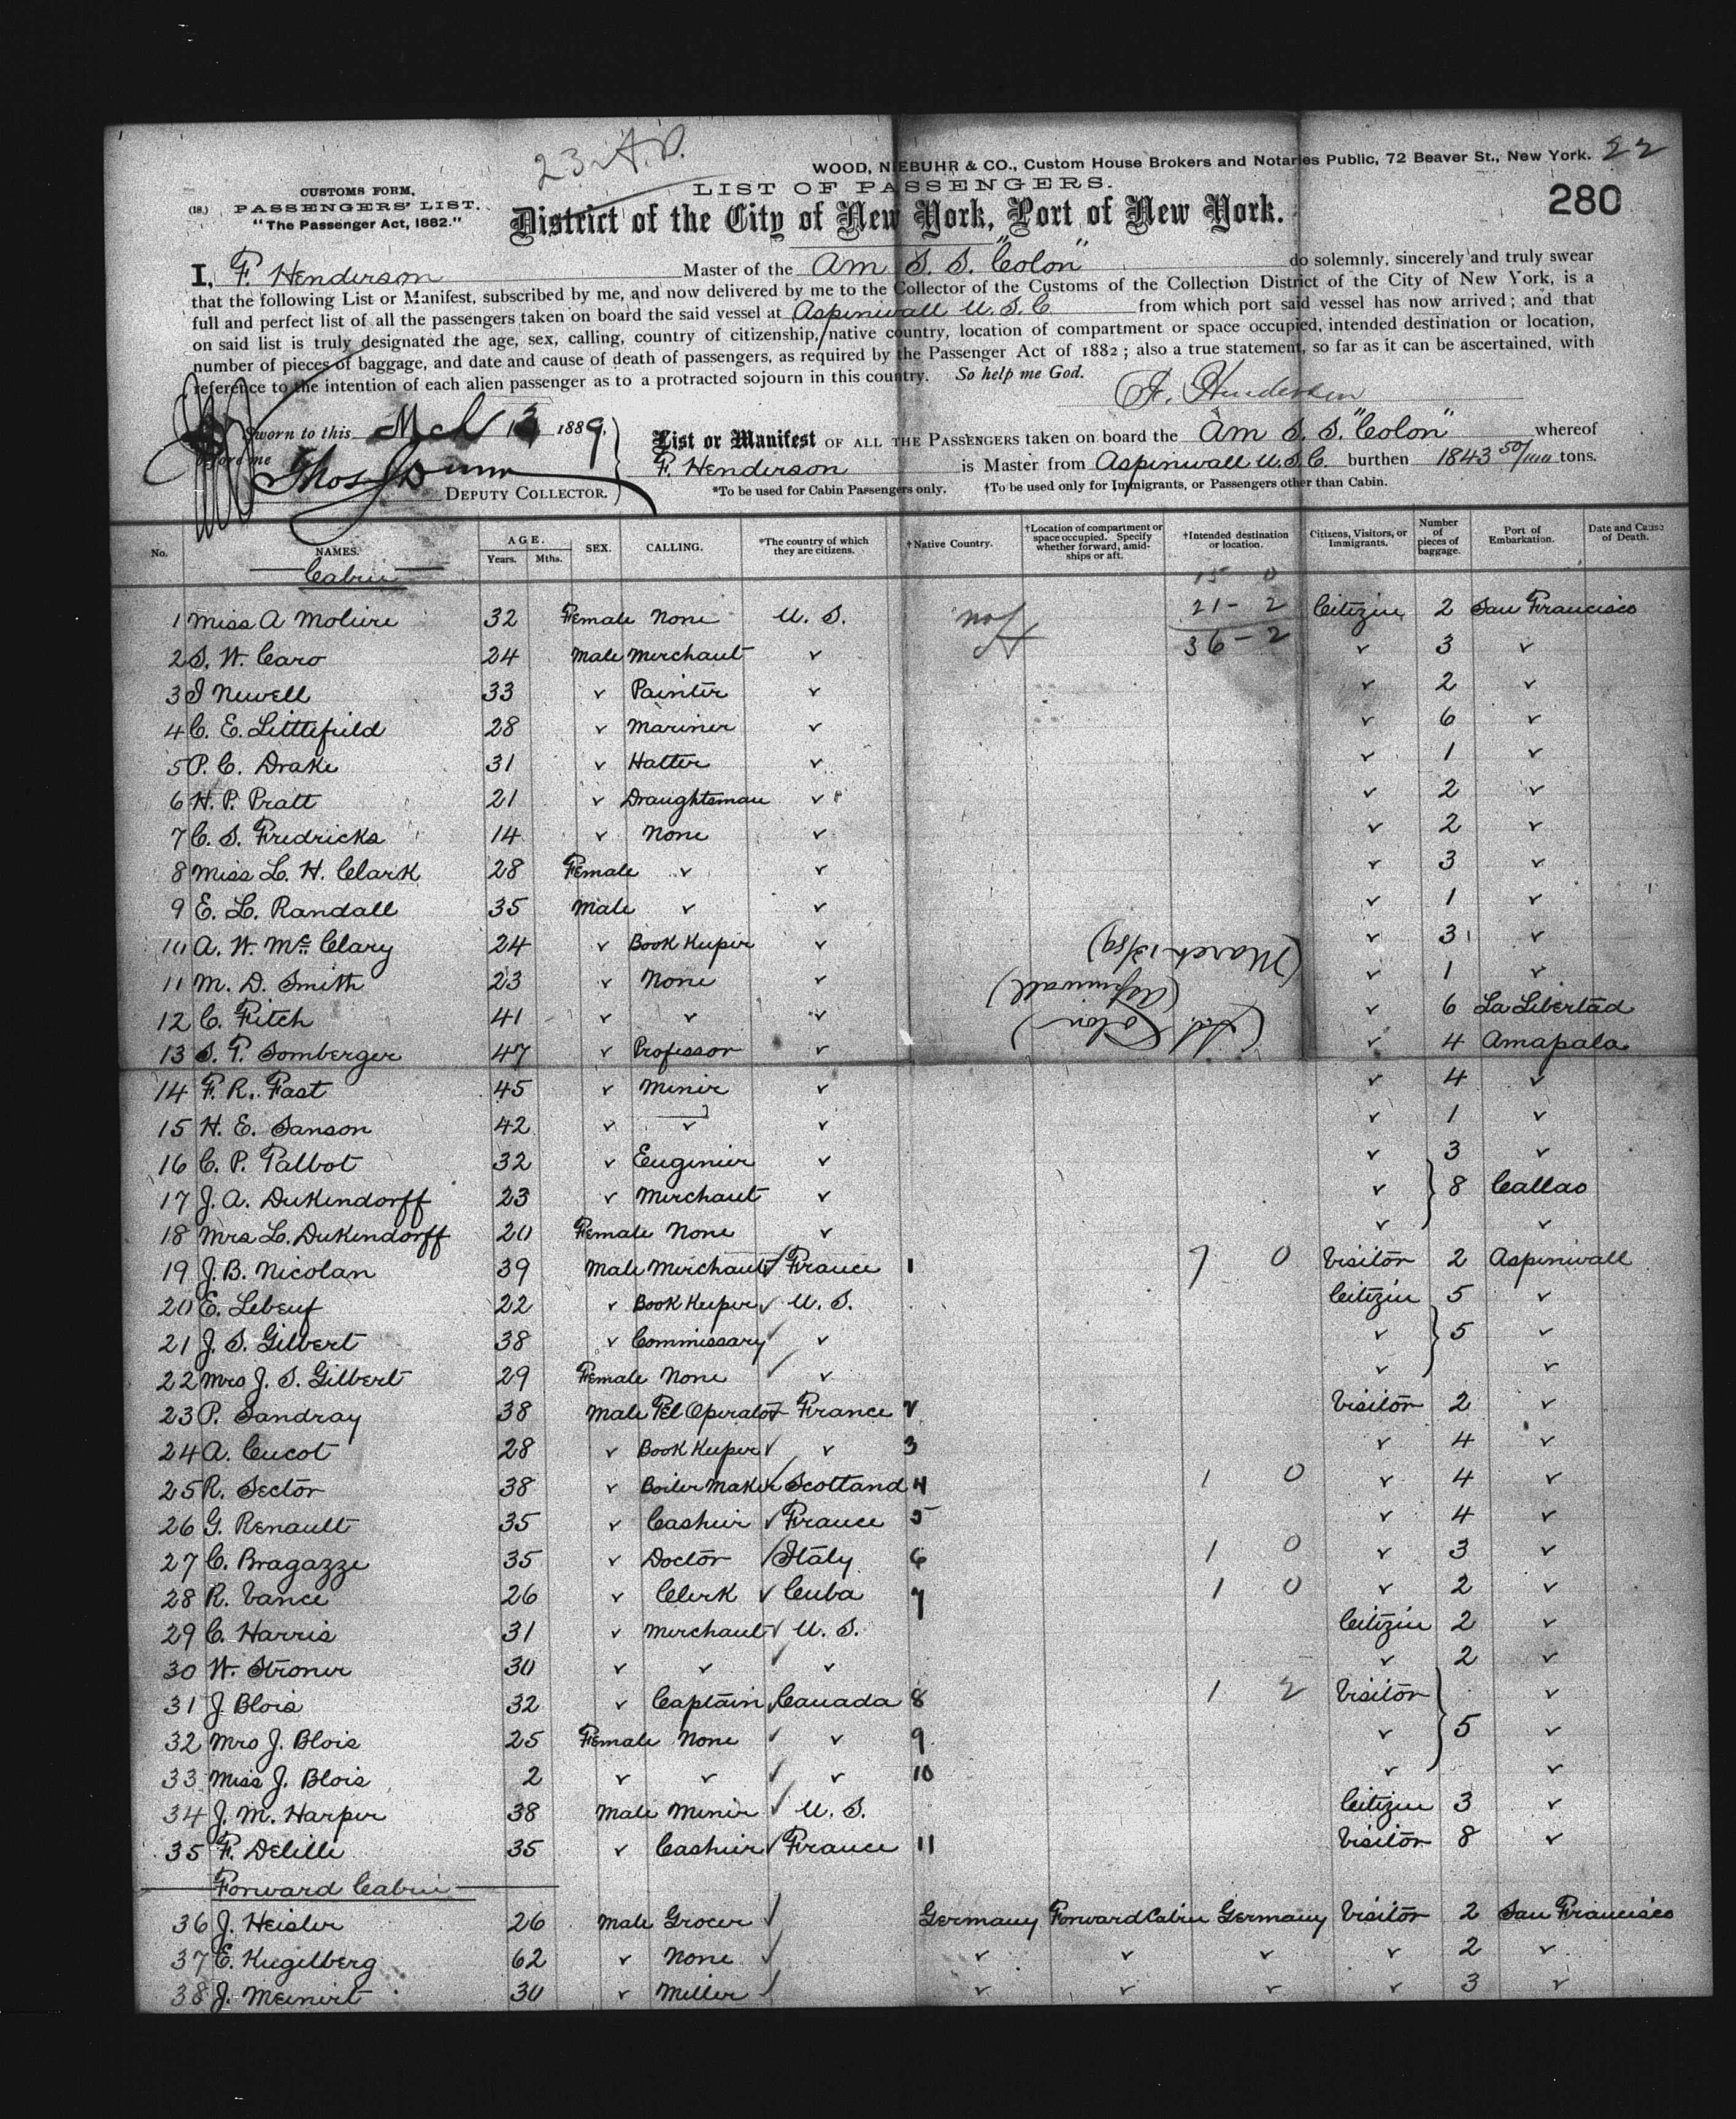 23 A.D.
WOOD, NIEBUHR & CO., Custom House Brokers and Notaries Public, 72 Beaver St., New York. 22
CUSTOMS FORM,
(18.) PASSENGERS' LIST.
"The Passenger Act, 1882."
LIST OF PASSENGERS.
280
District of the City of New York, Port of New York.
I, F. Henderson Master of the Am S. S. "Colon" do solemnly, sincerely and truly swear
that the following List or Manifest, subscribed by me, and now delivered by me to the Collector of the Customs of the Collection District of the City of New York, is a
full and perfect list of all the passengers taken on board the said vessel at Aspinwall U.S.C. from which port said vessel has now arrived; and that
on said list is truly designated the age, sex, calling, country of citizenship, native country, location of compartment or space occupied, intended destination or location,
number of pieces of baggage, and date and cause of death of passengers, as required by the Passenger Act of 1882; also a true statement, so far as it can be ascertained, with
reference to the intention of each alien passenger as to a protracted sojourn in this country. So help me God.
F. Henderson
Sworn to this Mch 13 1889,
before me
Thos J Dunn
DEPUTY COLLECTOR.
List or Manifest OF ALL THE PASSENGERS taken on board the Am S. S. "Colon" whereof
F. Henderson is Master from Aspinwall U.S.C. burthen 1843 50/100 tons.
*To be used for Cabin Passengers only. †To be used only for Immigrants, or Passengers other than Cabin.
No. NAMES. AGE. Years. Mths. SEX. CALLING. *The country of which they are citizens. †Native Country. †Location of compartment or space occupied. Specify whether forward, amidships or aft. †Intended destination or location. Citizens, Visitors, or Immigrants. Number of pieces of baggage. Port of Embarkation. Date and Cause of Death.
Cabin
15 0
21 - 2
36 - 2
1 Miss A Moliere 32 Female None U. S. Citizen 2 San Francisco
2 S. W. Caro 24 Male Merchant ✓ ✓ 3 ✓
3 I Newell 33 ✓ Painter ✓ ✓ 2 ✓
4 C. E. Littlefield 28 ✓ Mariner ✓ ✓ 6 ✓
5 P. C. Drake 31 ✓ Hatter ✓ ✓ 1 ✓
6 H. P. Pratt 21 ✓ Draughtsman ✓ ✓ 2 ✓
7 C. S. Fredricks 14 ✓ None ✓ ✓ 2 ✓
8 Miss L. H. Clark 28 Female ✓ ✓ ✓ 3 ✓
9 E. L. Randall 35 Male ✓ ✓ ✓ 1 ✓
10 A. W. McClary 24 ✓ Book Keeper ✓ ✓ 3 ✓
11 M. D. Smith 23 ✓ None ✓ ✓ 1 ✓
12 C. Fitch 41 ✓ ✓ ✓ ✓ 6 La Libertad
13 S. T. Somberger 47 ✓ Professor ✓ ✓ 4 Amapala
(S.S. Colon)
(Aspinwall)
(March 13/89)
14 F. R. Fast 45 ✓ Miner ✓ ✓ 4 ✓
15 H. E. Sanson 42 ✓ ✓ ✓ ✓ 1 ✓
16 C. P. Talbot 32 ✓ Engineer ✓ ✓ 3 ✓
17 J. A. Dukendorff 23 ✓ Merchant ✓ ✓ 8 Callao
18 Mrs L. Dukendorff 20 Female None ✓ ✓ ✓
19 J. B. Nicolan 39 Male Merchant ✓ France 1 7 0 Visitor 2 Aspinwall
20 E. Lebeuf 22 ✓ Book Keeper ✓ U. S. Citizen 5 ✓
21 J. S. Gilbert 38 ✓ Commissary ✓ ✓ ✓ 5 ✓
22 Mrs J. S. Gilbert 29 Female None ✓ ✓ ✓ ✓
23 P. Sandray 38 Male Tel Operator France 2 Visitor 2 ✓
24 A. Cucot 28 ✓ Book Keeper ✓ ✓ 3 ✓ 4 ✓
25 R. Sector 38 ✓ Boiler Maker Scotland 4 1 0 ✓ 4 ✓
26 G. Renault 35 ✓ Cashier ✓ France 5 ✓ 4 ✓
27 C. Bragazze 35 ✓ Doctor ✓ Italy 6 1 0 ✓ 3 ✓
28 R. Vance 26 ✓ Clerk ✓ Cuba 7 1 0 ✓ 2 ✓
29 C. Harris 31 ✓ Merchant ✓ U. S. Citizen 2 ✓
30 W. Stroner 30 ✓ ✓ ✓ ✓ ✓ 2 ✓
31 J Blois 32 ✓ Captain ✓ Canada 8 1 2 Visitor ✓
32 Mrs J. Blois 25 Female None ✓ ✓ 9 ✓ 5 ✓
33 Miss J. Blois 2 ✓ ✓ ✓ ✓ 10 ✓ ✓
34 J. M. Harper 38 Male Miner ✓ U. S. Citizen 3 ✓
35 F. Delille 35 ✓ Cashier ✓ France 11 Visitor 8 ✓
Forward Cabin
36 J. Heisler 26 Male Grocer ✓ Germany Forward Cabin Germany Visitor 2 San Francisco
37 E. Kugelberg 62 ✓ None ✓ ✓ ✓ ✓ ✓ 2 ✓
38 J. Meinert 30 ✓ Miller ✓ ✓ ✓ ✓ ✓ 3 ✓